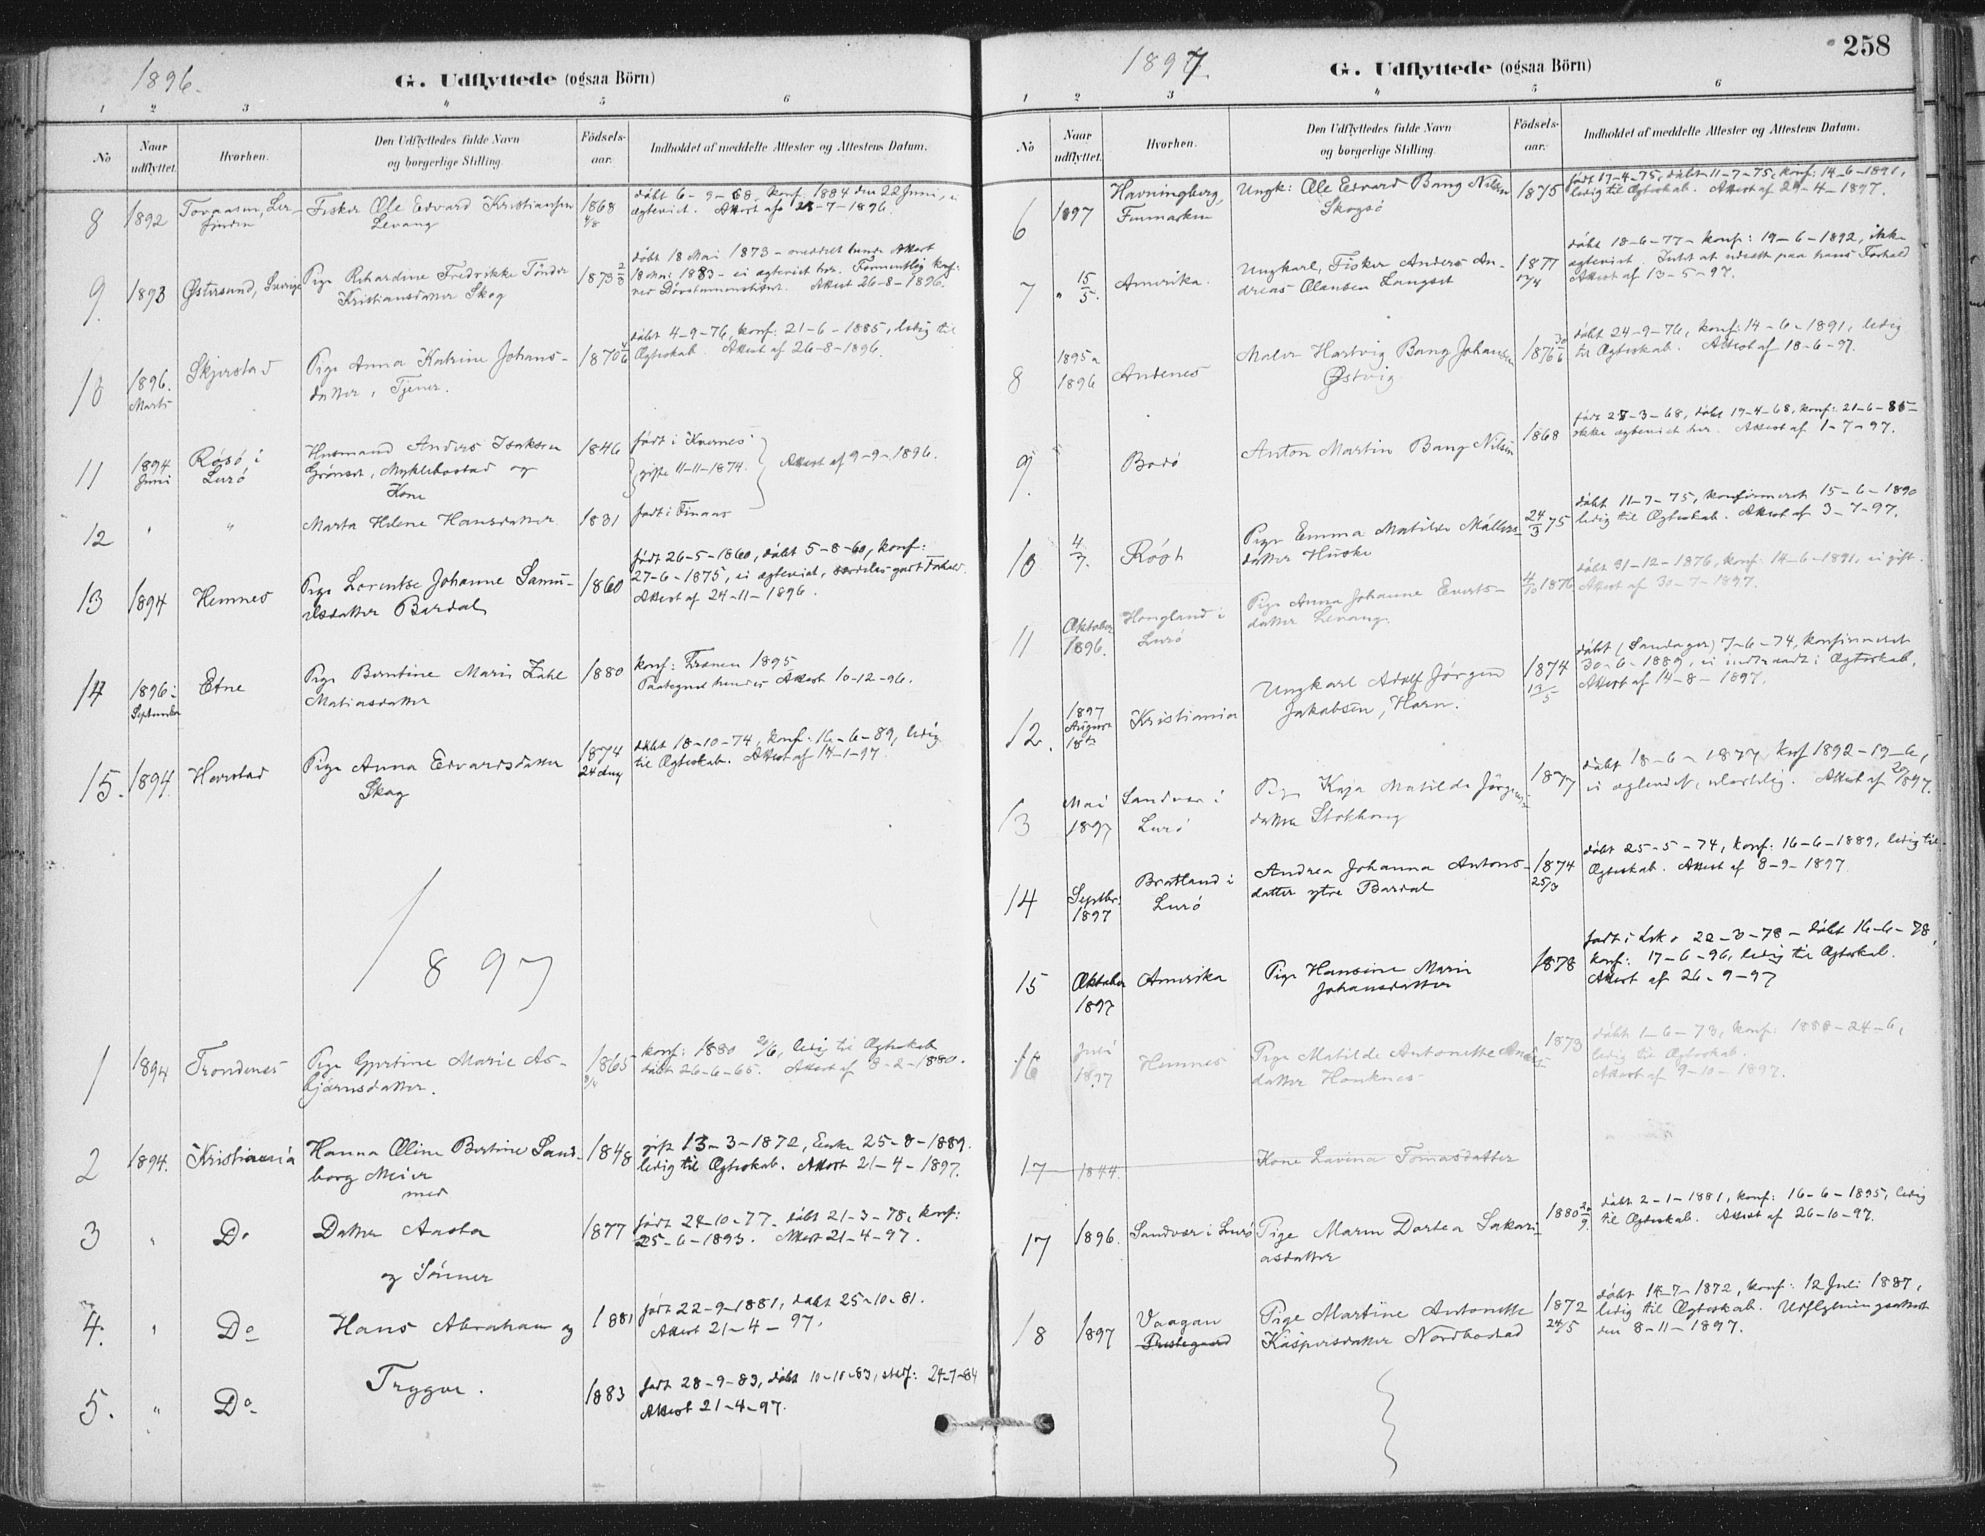 1896.
G. Udflyttede (ogsaa Börn)
1 2 3 4 5 6
No
Naar udflyttet.
Hvorhen.
Den Udflyttedes fulde Navn og borgerlige Stilling.
Födsels-aar.
Indholdet af meddelte Attester og Attestens Datum.
8 1892 Fisker Ole Edvard Kristiansen 1868 döbt 6-9-68, konf. 1884 den 22 Juni,
Levang 4/8 Attest af 23-7-1896.
9. 1893 Østersund, Sverige Pige Rikardine Fredrikke Tönder 1873 döbt 18 Mai 1873 - meddelt hende Attest
Kristiansdatter Skog 18 Mai 1883 - ei ægteviet her. Formentlig
Attest 26-8-1896.
10 1896. Marts Skjerstad Pige Anna Katrine Johans- 1870 döbt 4-9-76, konf: 21-6-1885, ledig til
datter, Tjener. Ægteskab Attest af 26-8-1896.
11 1894 Juni Røsö i Lurö Husmand Anders Isaksen 1846 født i Kvernes
Grönset, Myklebostad og gifte 11-11-1874. Attest af 9-9-1896.
Kone
12 " " Marta Helene Hansdatter 1831 født i
13 1894 Hemnes Pige Lorentse Johanne Samu- 1860 født 26-5-1860, döbt 5-8-60, konf:
elsdatter Bardal 27-6-1875, ei ægteviet, særdeles godt Forhold.
Attest af 24-11-1896.
14 1896: September Etne Pige Berntine Marie Zahl 1880 konf: Trænen 1895
Matiasdatter Paategnet hendes Attest 10-12-96.
15. 1894. Herrstad Pige Anna Edvardsdatter 1874 döbt 18-10-74, konf: 16-6-89, ledig
Skog 24 Aug til Ægteskab. Attest af 14-1-97.
1897
1 1894 Trondenes Pige Gjertine Marie As- 1865 konf: 1880 20/6, ledig til Ægteskab
björnsdatter. döbt 26-6-65. Attest af 3-2-1880.
2 1894. Kristiania Hanna Oline Bertine Sand- 1848 gift 13-3-1872, Enke 25-8-1889.
borg Meier ledig til Ægteskab. Attest 21-4-1897.
med
3 " Do Datter Aasta 1877 født 24-10-77, döbt 21-3-78, konf:
25-6-1893. Attest 21-4-97.
og Sönner
4. " Do Hans Abraham og 1881 født 22-9-1881, döbt 25-10-81.
Attest 21-4-97.
5. " Do Trygve. 1883 født 28-9-83, döbt 10-11-83, 24-7-84
Attest 21-4-97.
258
1897.
G. Udflyttede (ogsaa Börn)
1 2 3 4 5 6
No
Naar udflyttet.
Hvorhen.
Den Udflyttedes fulde Navn og borgerlige Stilling.
Födsels-aar.
Indholdet af meddelte Attester og Attestens Datum.
6 1897 Havningberg, Ungk: Ole Edvard Bang Nilsen 1875 født 17-4-75, döbt 11-7-75, konf: 14-6-1891,
Finmarken Skogsö ledig til Ægteskab. Attest af 29-4-1897.
7 " 15/5. Amerika. Ungkarl, Fisker Anders An- 1877 döbt 18-6-77 - konf: 19-6-1892, ikke
dreas Olausen Langset 17/4 ægteviet. Intet at udsætte paa hans Forhold
Attest af 13-5-97.
8 1895 a 1896 Andenes Maler Hartvig Bang Johansen 1876 döbt 24-9-76, konf: 14-6-1891, ledig
Østvig til Ægteskab. Attest af 18-6-97.
9. Bodö Anton Martin Bang Nilsen 1868 født 28-3-68, döbt 19-4-68, konf: 21-6-85
ikke ægteviet her. Attest af 1-7-97.
10 4/7. Røgh Pige Emma Matilde Möllers- 24/3 75 döbt 11-7-75, konfirmeret 15-6-1890
datter Huske ledig til Ægteskab. Attest af 3-7-97.
11 Oktober 1896. Hougland i Lurö Pige Anna Johanne Everts- 4/10 1876 döbt 31-12-1876, konf: 14-6-1891, ei gift.
datter Levang. Attest af 30-7-1897.
12. 1897 August 18de Kristiania Ungkarl Adolf Jörgen 1874 döbt (Sandager) 7-6-74, konfirmeret
Jakobsen, Horn. 13/5 30-6-1889, ei indtraadt i Ægteskab.
Attest af 14-8-1897.
13 Mai 1897 Sandvær i Lurö Pige Kaja Matilde Jörgens- 1877 döbt 18-6-1877, konf 1892-19-6,
datter Stokhong ei ægteviet, Attest af 1897.
14 Septbr: 1897 Bratland i Lurö Andrea Johanna Antons- 1874 döbt 25-5-74, konf: 16-6-1889, ledig til
datter ytre Bardal 25/3 Ægteskab. Attest af 8-9-1897
15 Oktober 1897 Amerika Pige Hansine Marie 1878 født i 22-3-78 - döbt 16-6-78,
Johansdatter konf: 17-6-96, ledig til Ægteskab.
Attest af 26-9-97
16 Juli 1897 Hemnes Pige Matilde Antonette Anders- 1873 döbt 1-6-73, konf: 1888-24-6,
datter Houknes ledig til Ægteskab.
Attest af 9-10-1897.
17 1844. Kone Lavina Tomasdatter
17 1896. Sandvær i Lurö Pige Maren Dortea Sakari- 1880 20/9. döbt 2-1-1881, konf: 16-6-1895, ledig
asdatter til Ægteskab. Attest af 26-10-97.
18 1897 Vaagan Pige Martine Antonette 1872 döbt 14-7-1872, konf: 12 Juli 1887,
Prestegaard Kaspersdatter Nordbostad 24/5 ledig til Ægteskab. Udflytningsattest
den 8-11-1897.